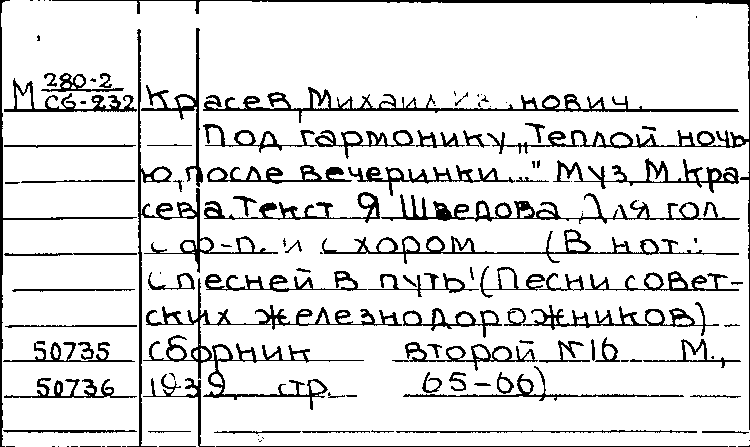 М 280-2
Сб-232 Красев, Михаил Ив.нович.
Под гармонику „Теплой ночь-
ю, после вечеринки..." Муз. М. Кра-
сева. Текст Я. Шведова. Для гол.
с ф-п. и с хором (В нот.:
С песней в путь! (Песни совет-
ских железнодорожников)
50735 сборник второй №16 М.,
50736 1939. стр. 65-66).